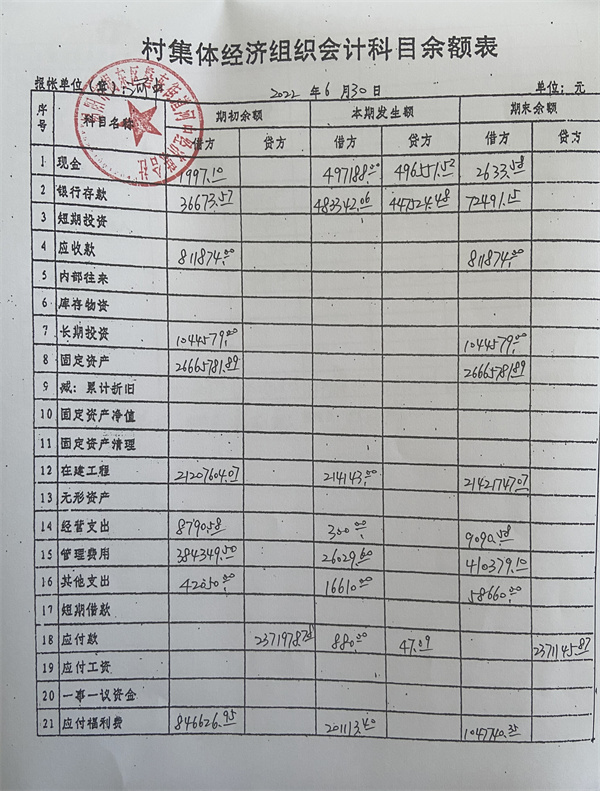 村集体经济组织会计科目余额表
报帐单位(签): 2022年6月30日 单位:元
序号 科目名称 期初余额 本期发生额 期末余额
借方 贷方 借方 贷方 借方 贷方
1 现金 1997.10 497188.00 496551.52 2633.58
2 银行存款 36673.57 483342.06 447524.48 72491.15
3 短期投资
4 应收款 811874.00 811874.00
5 内部往来
6 库存物资
7 长期投资 1044579.00 1044579.00
8 固定资产 26665781.89 26665781.89
9 减:累计折旧
10 固定资产净值
11 固定资产清理
12 在建工程 21207604.07 214143.00 21421747.07
13 无形资产
14 经营支出 8790.58 300.00 9090.58
15 管理费用 384349.50 26029.60 410379.10
16 其他支出 42050.00 16610.00 58660.00
17 短期借款
18 应付款 2371978.78 880.00 47.09 2371145.87
19 应付工资
20 一事一议资金
21 应付福利费 846626.95 201113.40 1047740.35